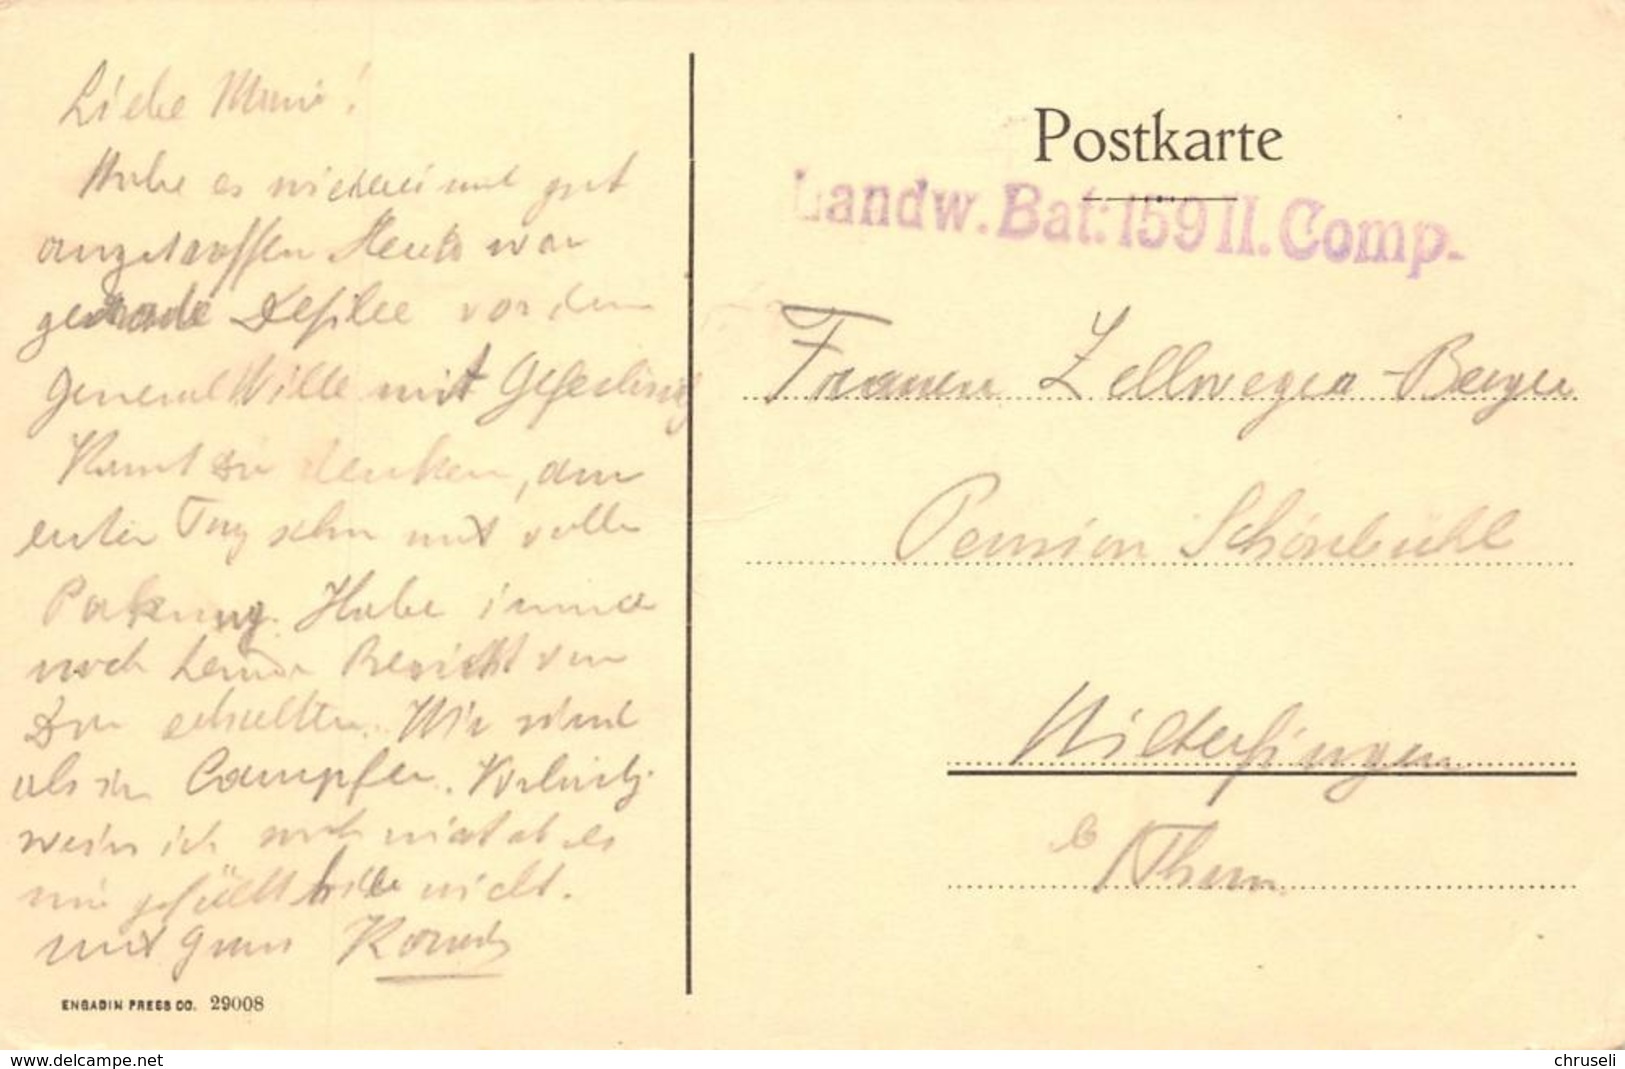 Liebe Mimi!
Habe es wieder einmal gut
angetroffen Heute war
gerade Defilee vor dem
General Wille mit Gefechts
Kannst Dir denken, am
ersten Tag schon mit voller
Pakung. Habe immer
noch keinen Bericht von
Dir erhalten. Wir sind
als in Campfer.
weiss ich noch nicht ob es
mir gefällt oder nicht.
mit Gruss Konrad
ENGADIN PRESS CO. 29008
Postkarte
Landw. Bat: 159 II. Comp.
Frauen Zellweger-Berger
Pension Schönbühl
Hilterfingen
b Thun
www.delcampe.net
chruseli